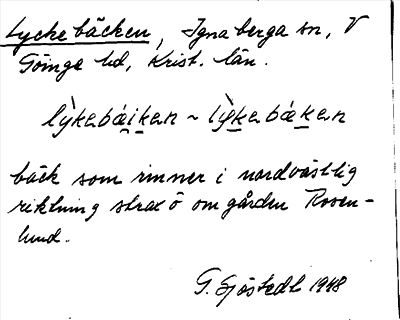 Lyckebäcken, Ignaberga sn, V
Göinge hd, Krist. län.
lỳkebáiken ~ lỳkebáken
bäck som rinner i nordvästlig
riktning strax ö om gården Rosen-
lund.
G. Sjöstedt 1948